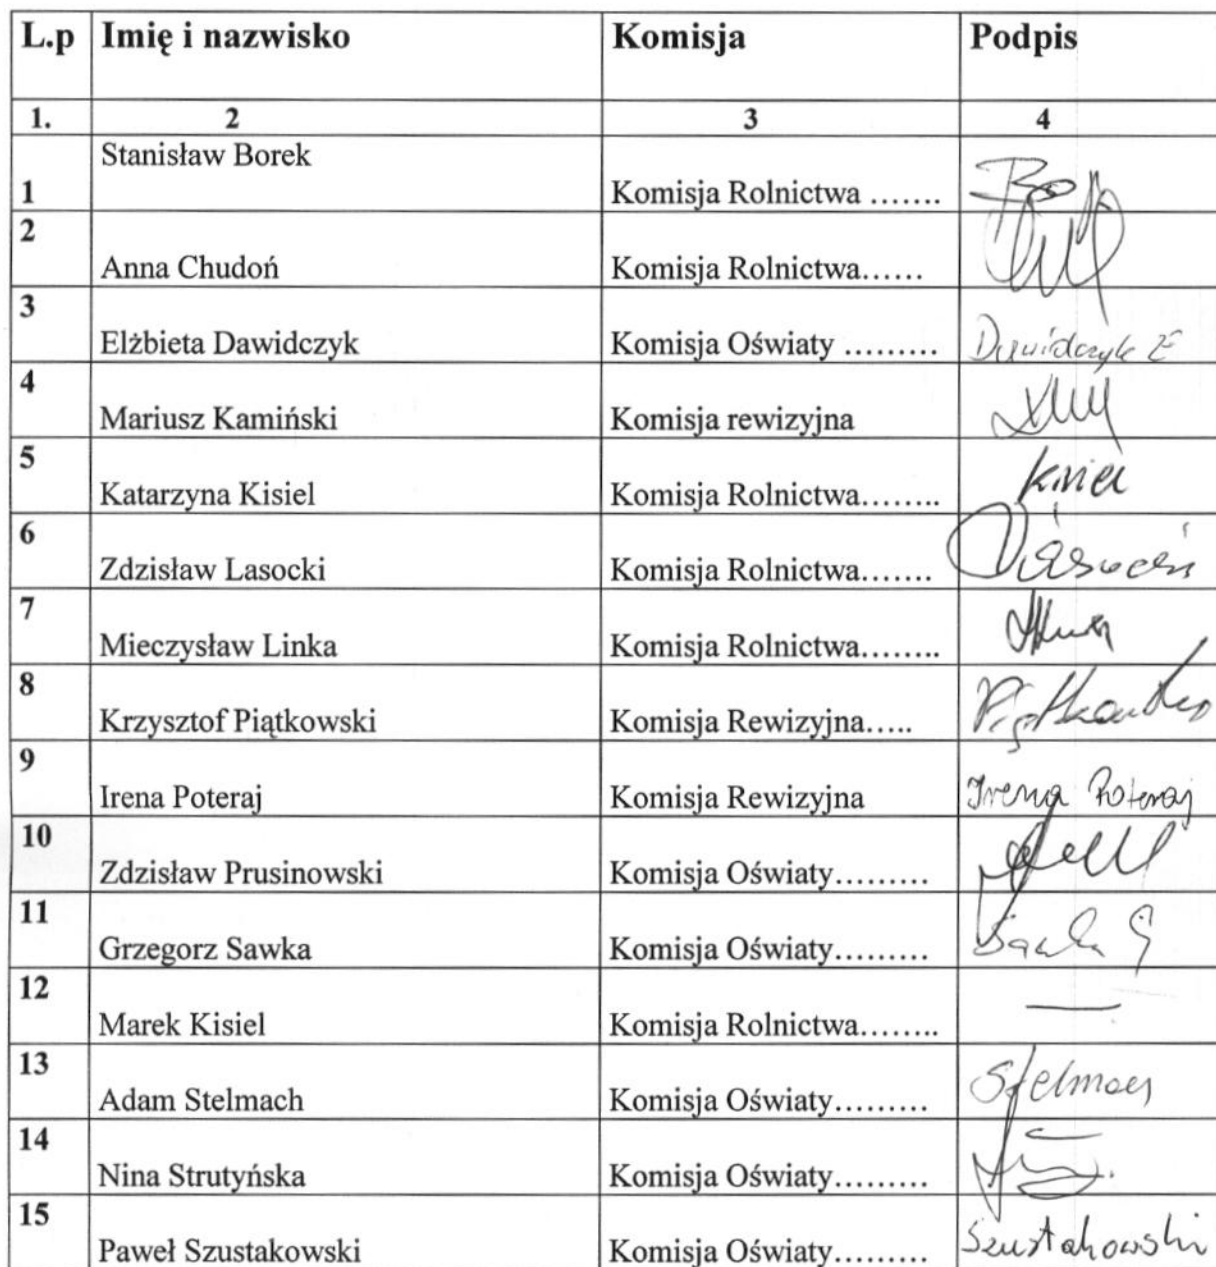 L.p Imię i nazwisko Komisja Podpis
1. 2 3 4
Stanisław Borek
1 Komisja Rolnictwa …….
2
Anna Chudoń Komisja Rolnictwa……
3
Elżbieta Dawidczyk Komisja Oświaty ……… Dawidczyk E
4
Mariusz Kamiński Komisja rewizyjna
5
Katarzyna Kisiel Komisja Rolnictwa…….. Kisiel
6
Zdzisław Lasocki Komisja Rolnictwa…….
7
Mieczysław Linka Komisja Rolnictwa……..
8
Krzysztof Piątkowski Komisja Rewizyjna….. Piątkowski
9
Irena Poteraj Komisja Rewizyjna Irena Poteraj
10
Zdzisław Prusinowski Komisja Oświaty………
11
Grzegorz Sawka Komisja Oświaty……… Sawka G
12
Marek Kisiel Komisja Rolnictwa…….. —
13
Adam Stelmach Komisja Oświaty……… Stelmach
14
Nina Strutyńska Komisja Oświaty………
15
Paweł Szustakowski Komisja Oświaty……… Szustakowski